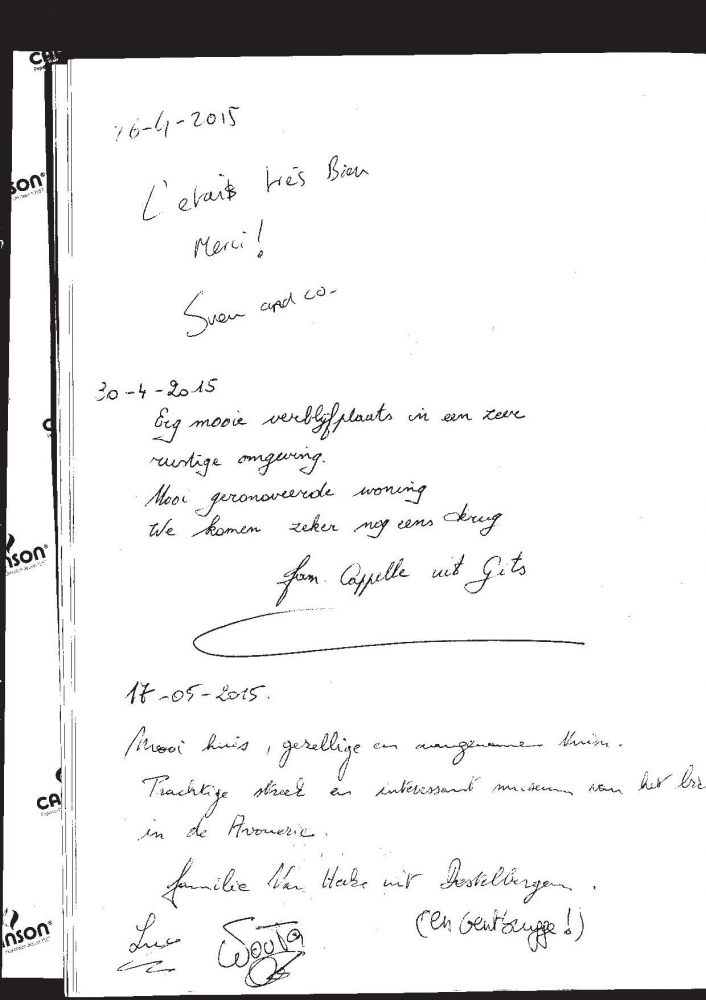 26-4-2015
L'etais très Bien
Merci!
Sven and co-
30-4-2015
Erg mooie verblijfplaats in een zeer
rustige omgeving.
Mooi geronoveerde woning
We komen zeker nog eens terug
fam. Cappelle uit Gits
17-05-2015.
Mooi huis, gezellige en aangename tuin.
Prachtige streek en interessant museum van het
in de Avouerie.
familie Van Hecke uit Destelbergen.
(en Gentbrugge!)
Luc
Wouter
CANSON